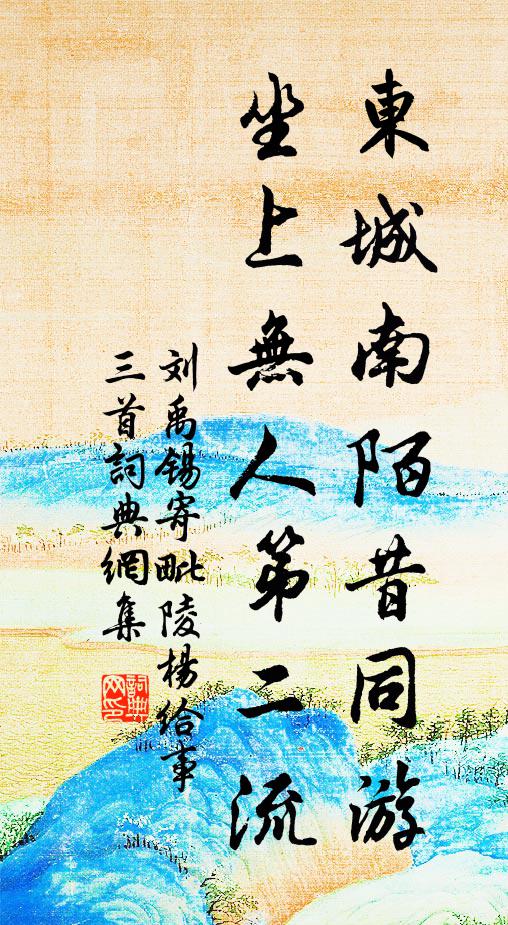 東城南陌昔同游
坐上無人第二流
刘禹錫寄毗陵楊給事
三首詞典網集
詞典
网印